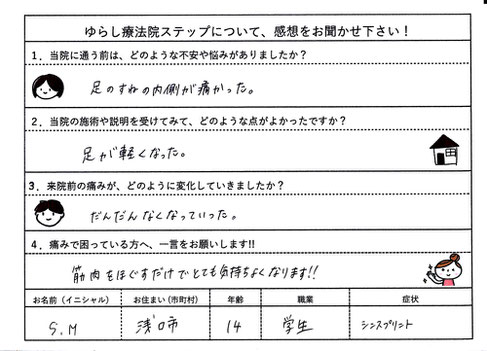 ゆらし療法院ステップについて、感想をお聞かせ下さい！
1．当院に通う前は、どのような不安や悩みがありましたか？
足のすねの内側が痛かった。
2．当院の施術や説明を受けてみて、どのような点がよかったですか？
足が軽くなった。
3．来院前の痛みが、どのように変化していきましたか？
だんだんなくなっていった。
4．痛みで困っている方へ、一言をお願いします!!
筋肉をほぐすだけでとても気持ちよくなります!!
お名前（イニシャル） お住まい（市町村） 年齢 職業 症状
S.M 浅口市 14 学生 シンスプリント